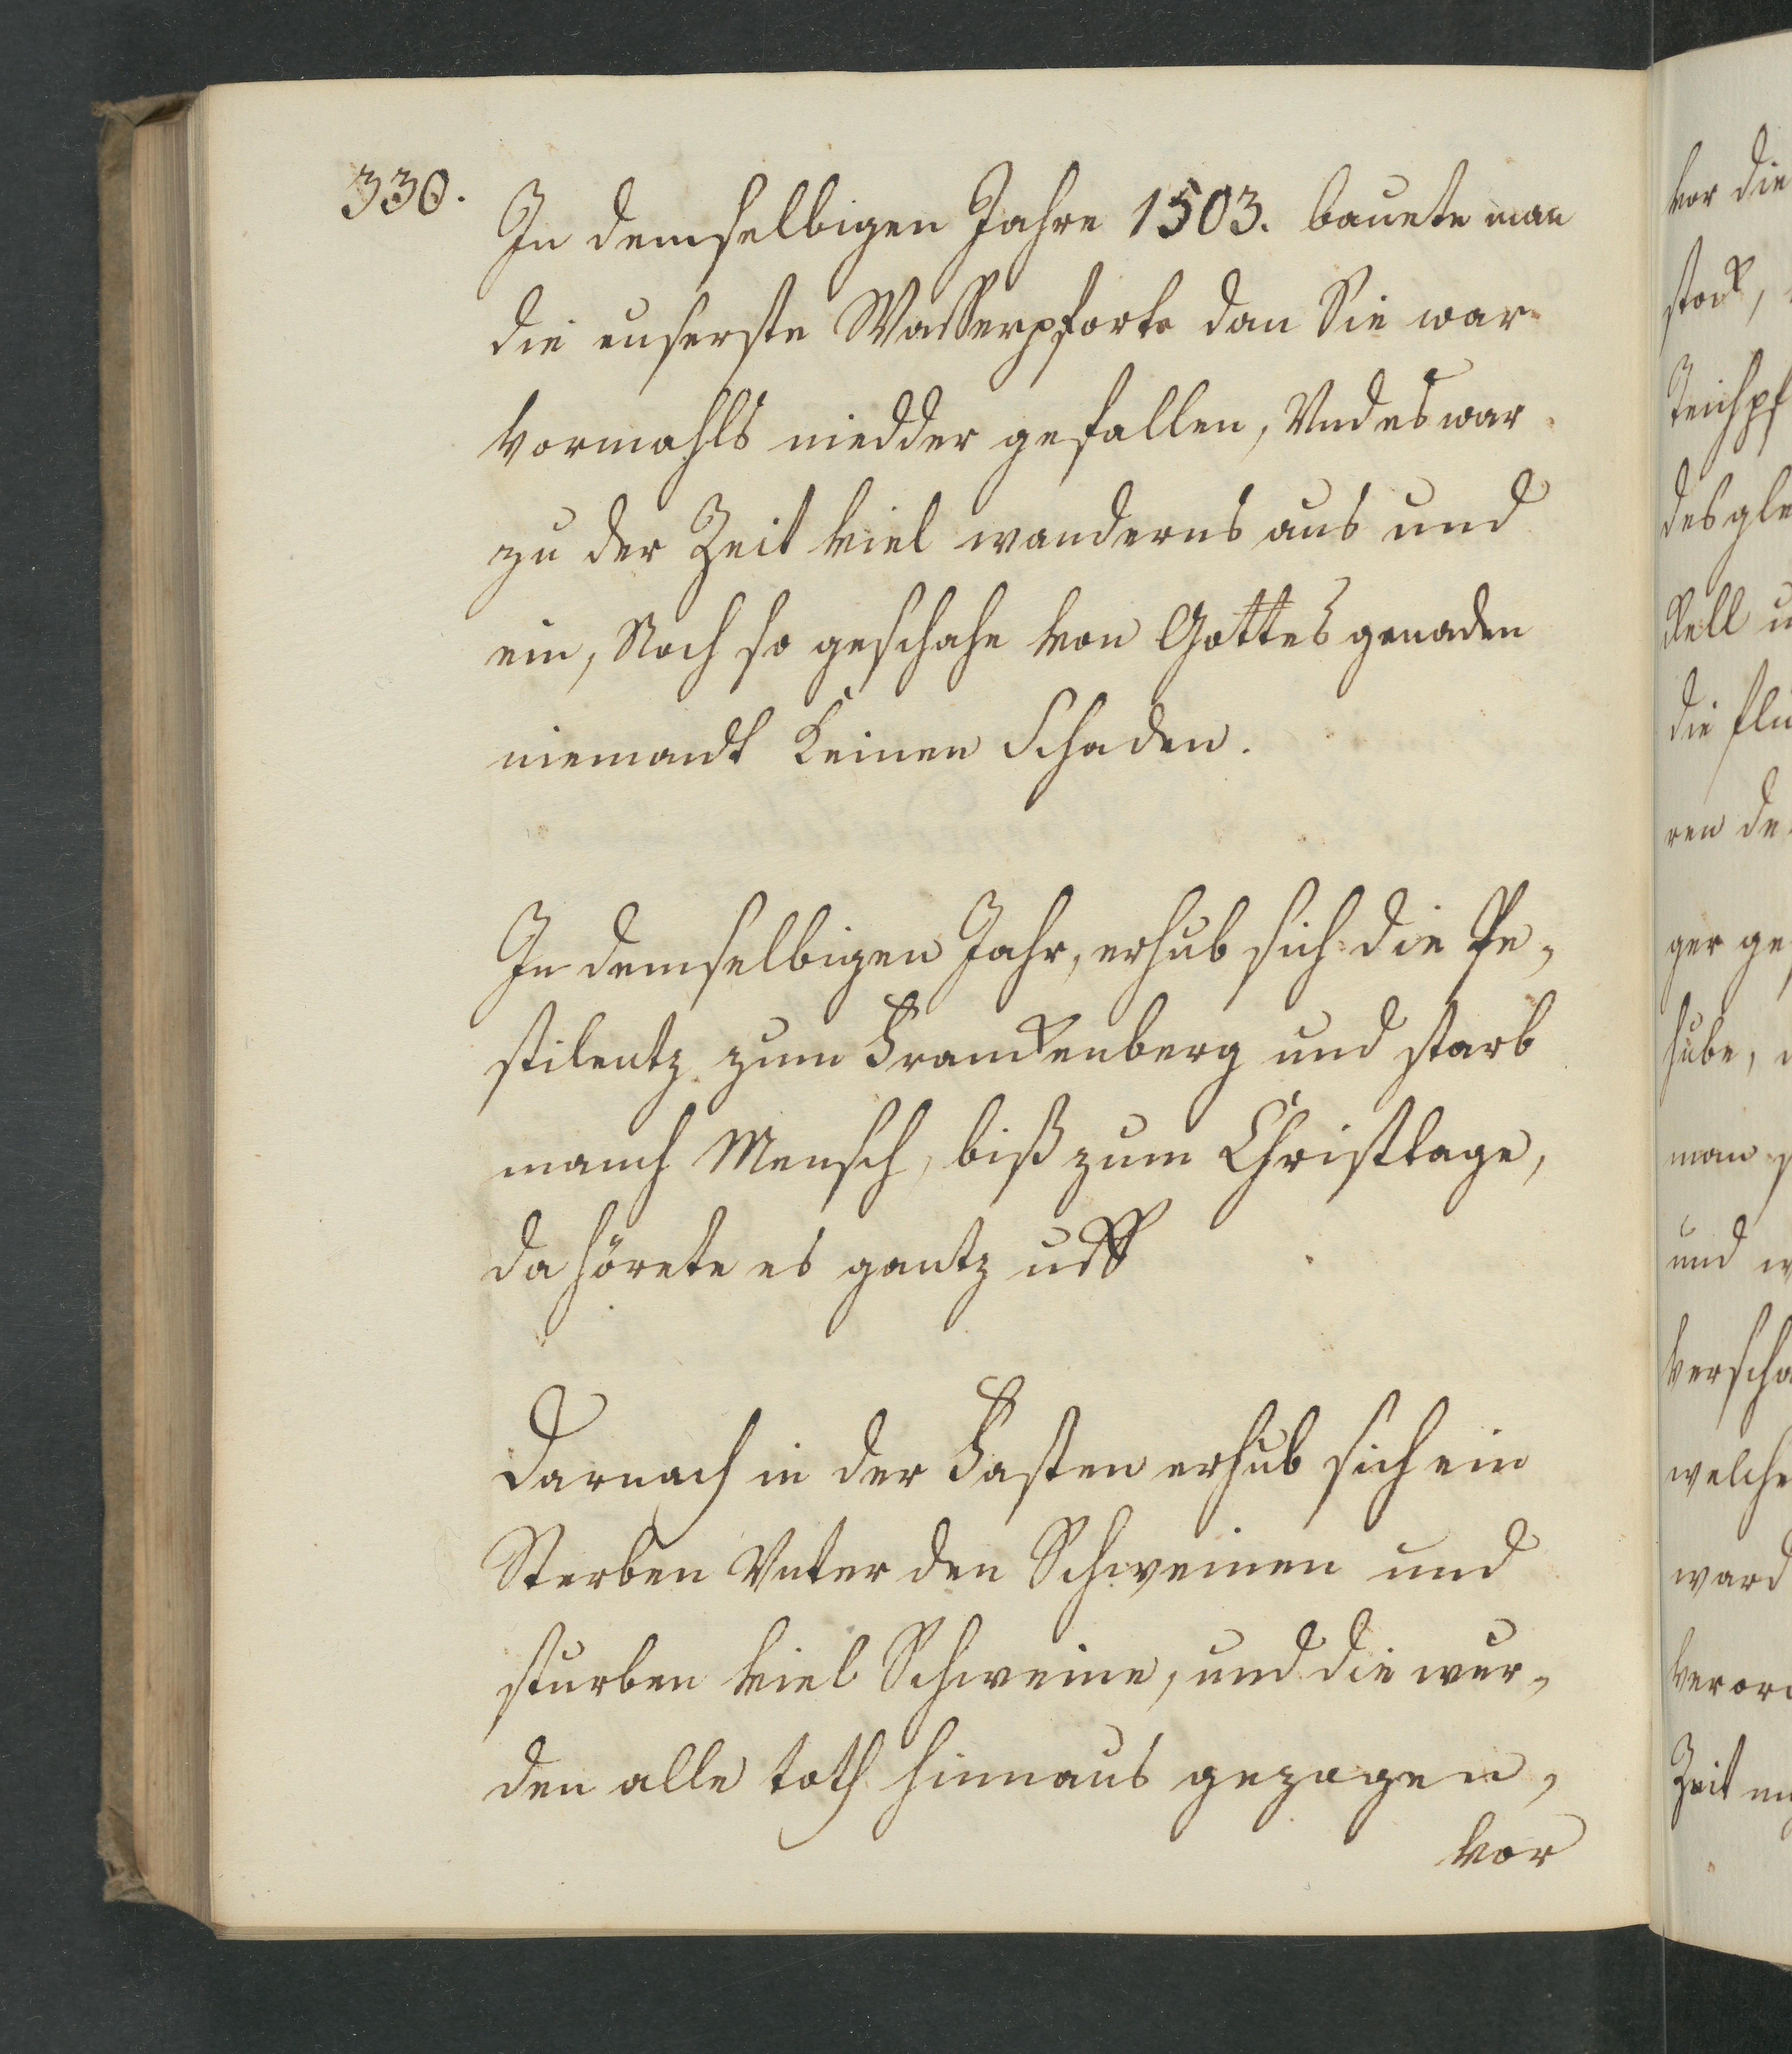 330.
In demselbigen Jahre 1503. bauete man
die euserste Wasserpforte dan Sie war
vormahls niedder gefallen, Vnd es war
zu der Zeit viel wanderns aus und
ein, Noch so geschahe von Gottes genaden
niemandt keinen Schaden.
In demselbigen Jahr, erhub sich die Pe-
stilentz zum Franckenberg und starb
manch Mensch, biß zum Christtage,
da hörete es gantz uff
Darnach in der Fasten erhub sich ein
Sterben Vnter den Schweinen und
sturben viel Schweine, und die wur-
den alle toth hinnaus gezogen,
vor
vor die
stock,
Teichpf
des gle
die
ren de
ger ge
hube,
man
und
verscha
welche
ward
Zeit